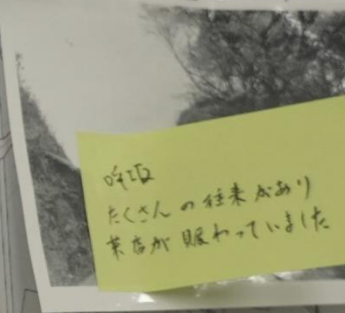 咲坂
たくさんの往来があり
茶店が賑わっていました